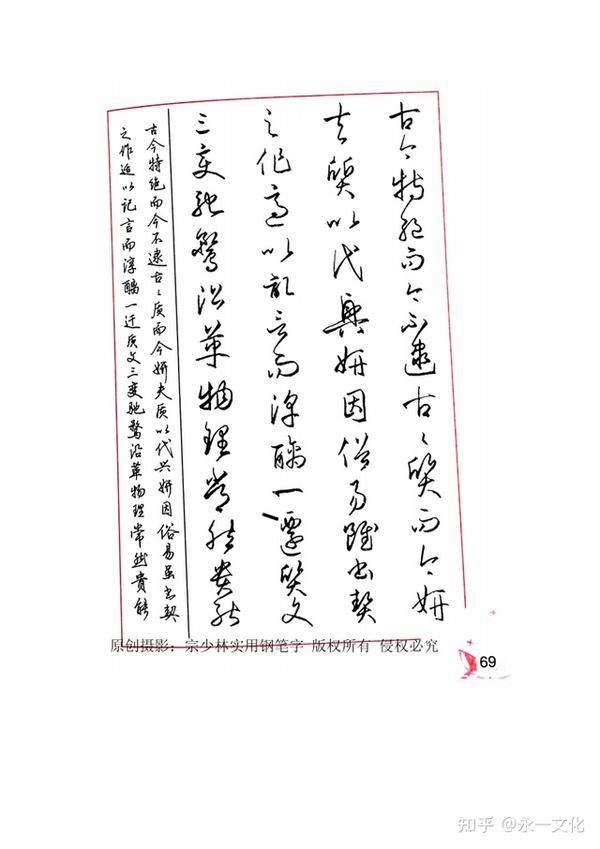 古今特絕而今不逮古〻質而今妍
夫質以代興妍因俗易雖书契
之作適以記言而淳醨一遷質文
三变馳鶩沿革物理常然貴能
古今特绝而今不逮古〻质而今妍夫质以代兴妍因俗易虽书契
之作适以记言而淳醨一迁质文三变驰鹜沿革物理常然贵能
原创摄影：宗少林实用钢笔字 版权所有 侵权必究
69
知乎 @永一文化